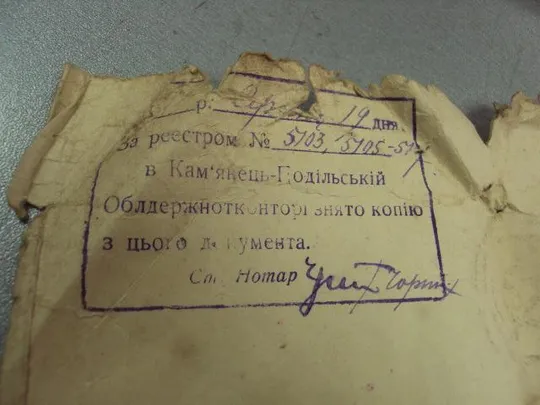 р. 19 дня.
За реестром № 5103, 5105-51
в Кам'янець-Подільській
Облдержнотконторі знято копію
з цього документа.
Ст. Нотар